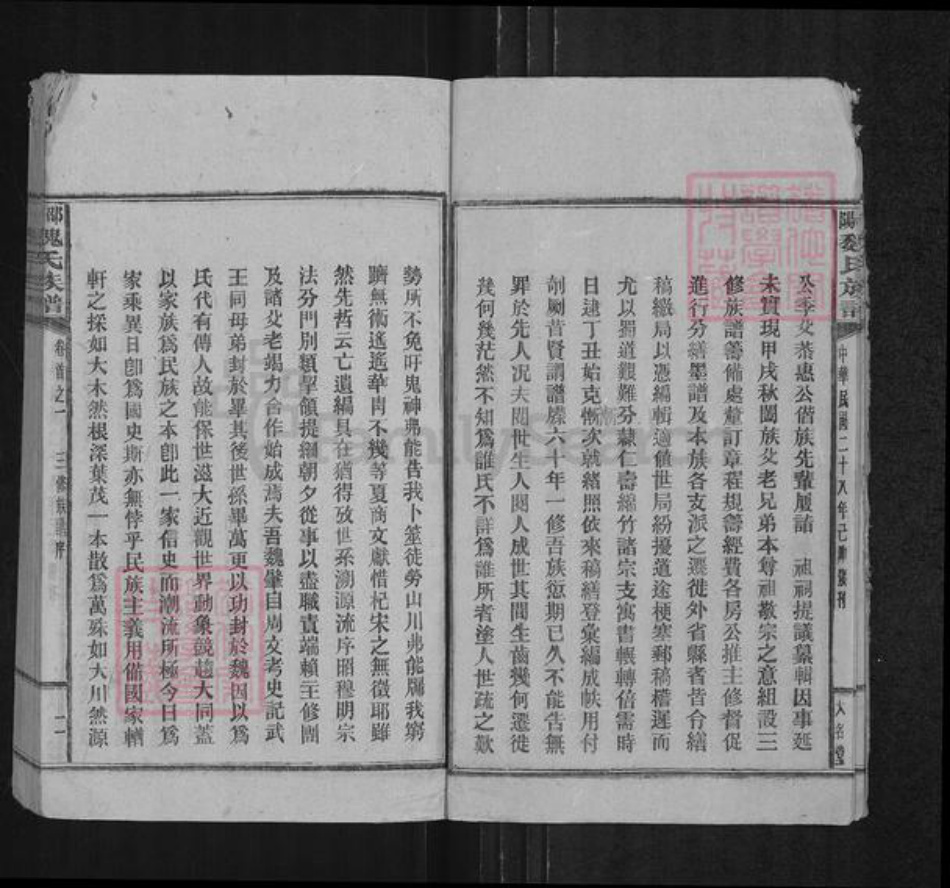 陽魏氏族譜
中華民國二十八年己卯續刊
大名堂
公季父蒸惠公偕族先輩屢詣 祖祠提議纂輯因事延
未實現甲戌秋闔族父老兄弟本尊祖敬宗之意組設三
修族譜籌備處釐訂章程規籌經費各房公推主修督促
進行分繕墨譜及本族各支派之遷徙外省縣者皆合繕
稿繳局以憑編輯適值世局紛擾道途梗塞郵稿稽遲而
尤以蜀道艱難分隸仁壽綿竹諸宗支寓書輾轉倍需時
日逮丁丑始克漸次就緒照依來稿繕登彙編成帙用付
剞劂昔賢謂譜牒六十年一修吾族愆期已久不能告無
罪於先人況夫閱世生人閱人成世其間生齒幾何遷徙
幾何幾茫然不知為誰氏不詳為誰所者塗人世疏之歎
勢所不免吁鬼神弗能告我卜筮徒勞山川弗能牖我窮
躋無術遙遙華冑不幾等夏商文獻惜杞宋之無徵耶雖
然先哲云亡遺編具在猶得攷世系溯源流序昭穆明宗
法分門別類挈領提綱朝夕從事以盡職責端賴三修團
及諸父老竭力合作始成焉夫吾魏肇自周文考史記武
王同母弟封於畢其後世孫畢萬更以功封於魏因以為
氏代有傳人故能保世滋大近觀世界動象競趨大同蓋
以家族為民族之本卽此一家信史而潮流所極今日為
家乘異日卽為國史斯亦無悖乎民族主義用備國家輶
軒之採如大木然根深葉茂一本散為萬殊如大川然源
邵魏氏族譜
卷首之一
三修族譜序
二